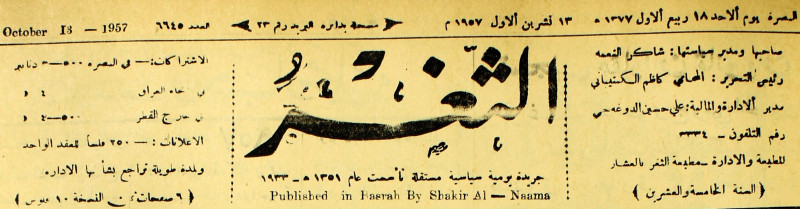 البصرة يوم الاحد ١٨ ربيع الاول ١٣٧٧ ه
١٣ تشرين الاول ١٩٥٧ م
مسجلة بدائرة البريد رقم ٢٣
العدد ٦٦٤٥
October 13 — 1957
صاحبها ومدير سياستها : شاكر النعمه
رئيس التحرير : المحامي كاظم الكتيباني
مدير الادارة والمالية : علي حسين الدوغه جي
رقم التلفون – ٣٣٣٤
المطبعة والادارة – مطبعة الثغر بالعشار
( السنة الخامسة والعشرين )
الثغر
جريدة يومية سياسية مستقلة تأسست عام ١٣٥١ ه – ١٩٣٣
Published in Basrah By Shakir Al — Naama
الاشتراكات :— في البصره ٥٠٠–٣ دنانير
في انحاء العراق ٤ د
في خارج القطر ٥٠٠–٤ د
الاعلانات :— ٢٥٠ فلساً للعقد الواحد
ولمدة طويلة تراجع بشأنها الاداره
( ٦ صفحات النسخة ١٠ فلوس )